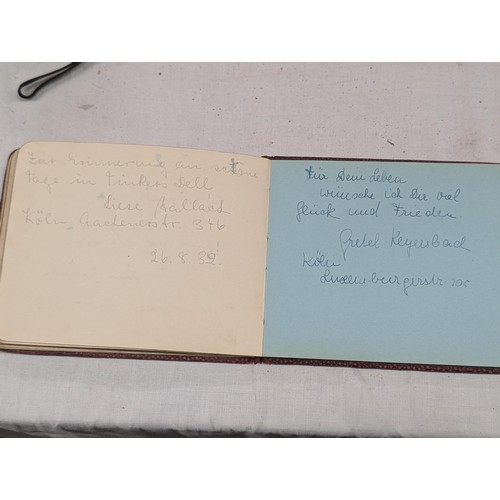 Zur Erinnerung an schöne
Tage in Tinkers Dell
Köln, Aachenerstr 376
26.8.39.
Für Dein Leben
wünsche ich Dir viel
Glück und Frieden.
Gretel
Köln
Luxemburgerstr.